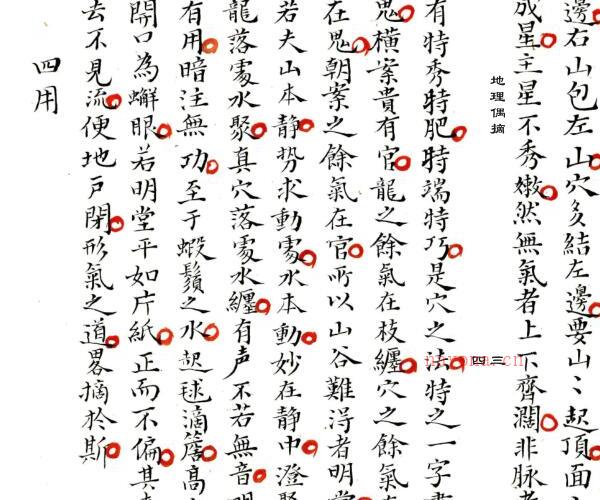 邊右山包左山穴多結左邊要山〻起頂面
成星主星不秀嫩然無氣者上下齊濶非脉者
地理偶摘
四三
有特秀特肥特端特巧是穴之法特之一字
鬼橫案貴有官龍之餘氣在枝纏穴之餘氣
在鬼朝案之餘氣在官所以山谷難淂者明堂
若夫山本静势求動處水本動妙在静中澄聚
龍落處水聚真穴落處水纏有声不若無音明
有用暗注無功至于蝦鬚之水起毬滴簷高
開口為蠏眼若明堂平如片紙正而不偏其
去不見流便地戸閉形氣之道畧摘於斯
四用